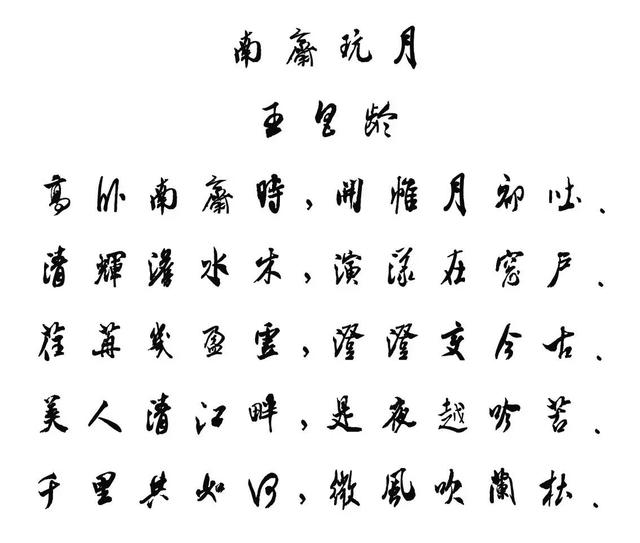 南齋玩月
王昌龄
高卧南齋時,開帷月初吐.
清輝澹水木,演漾在窗户.
荏苒幾盈虚,澄澄变今古.
美人清江畔,是夜越吟苦.
千里共如何,微風吹蘭杜.